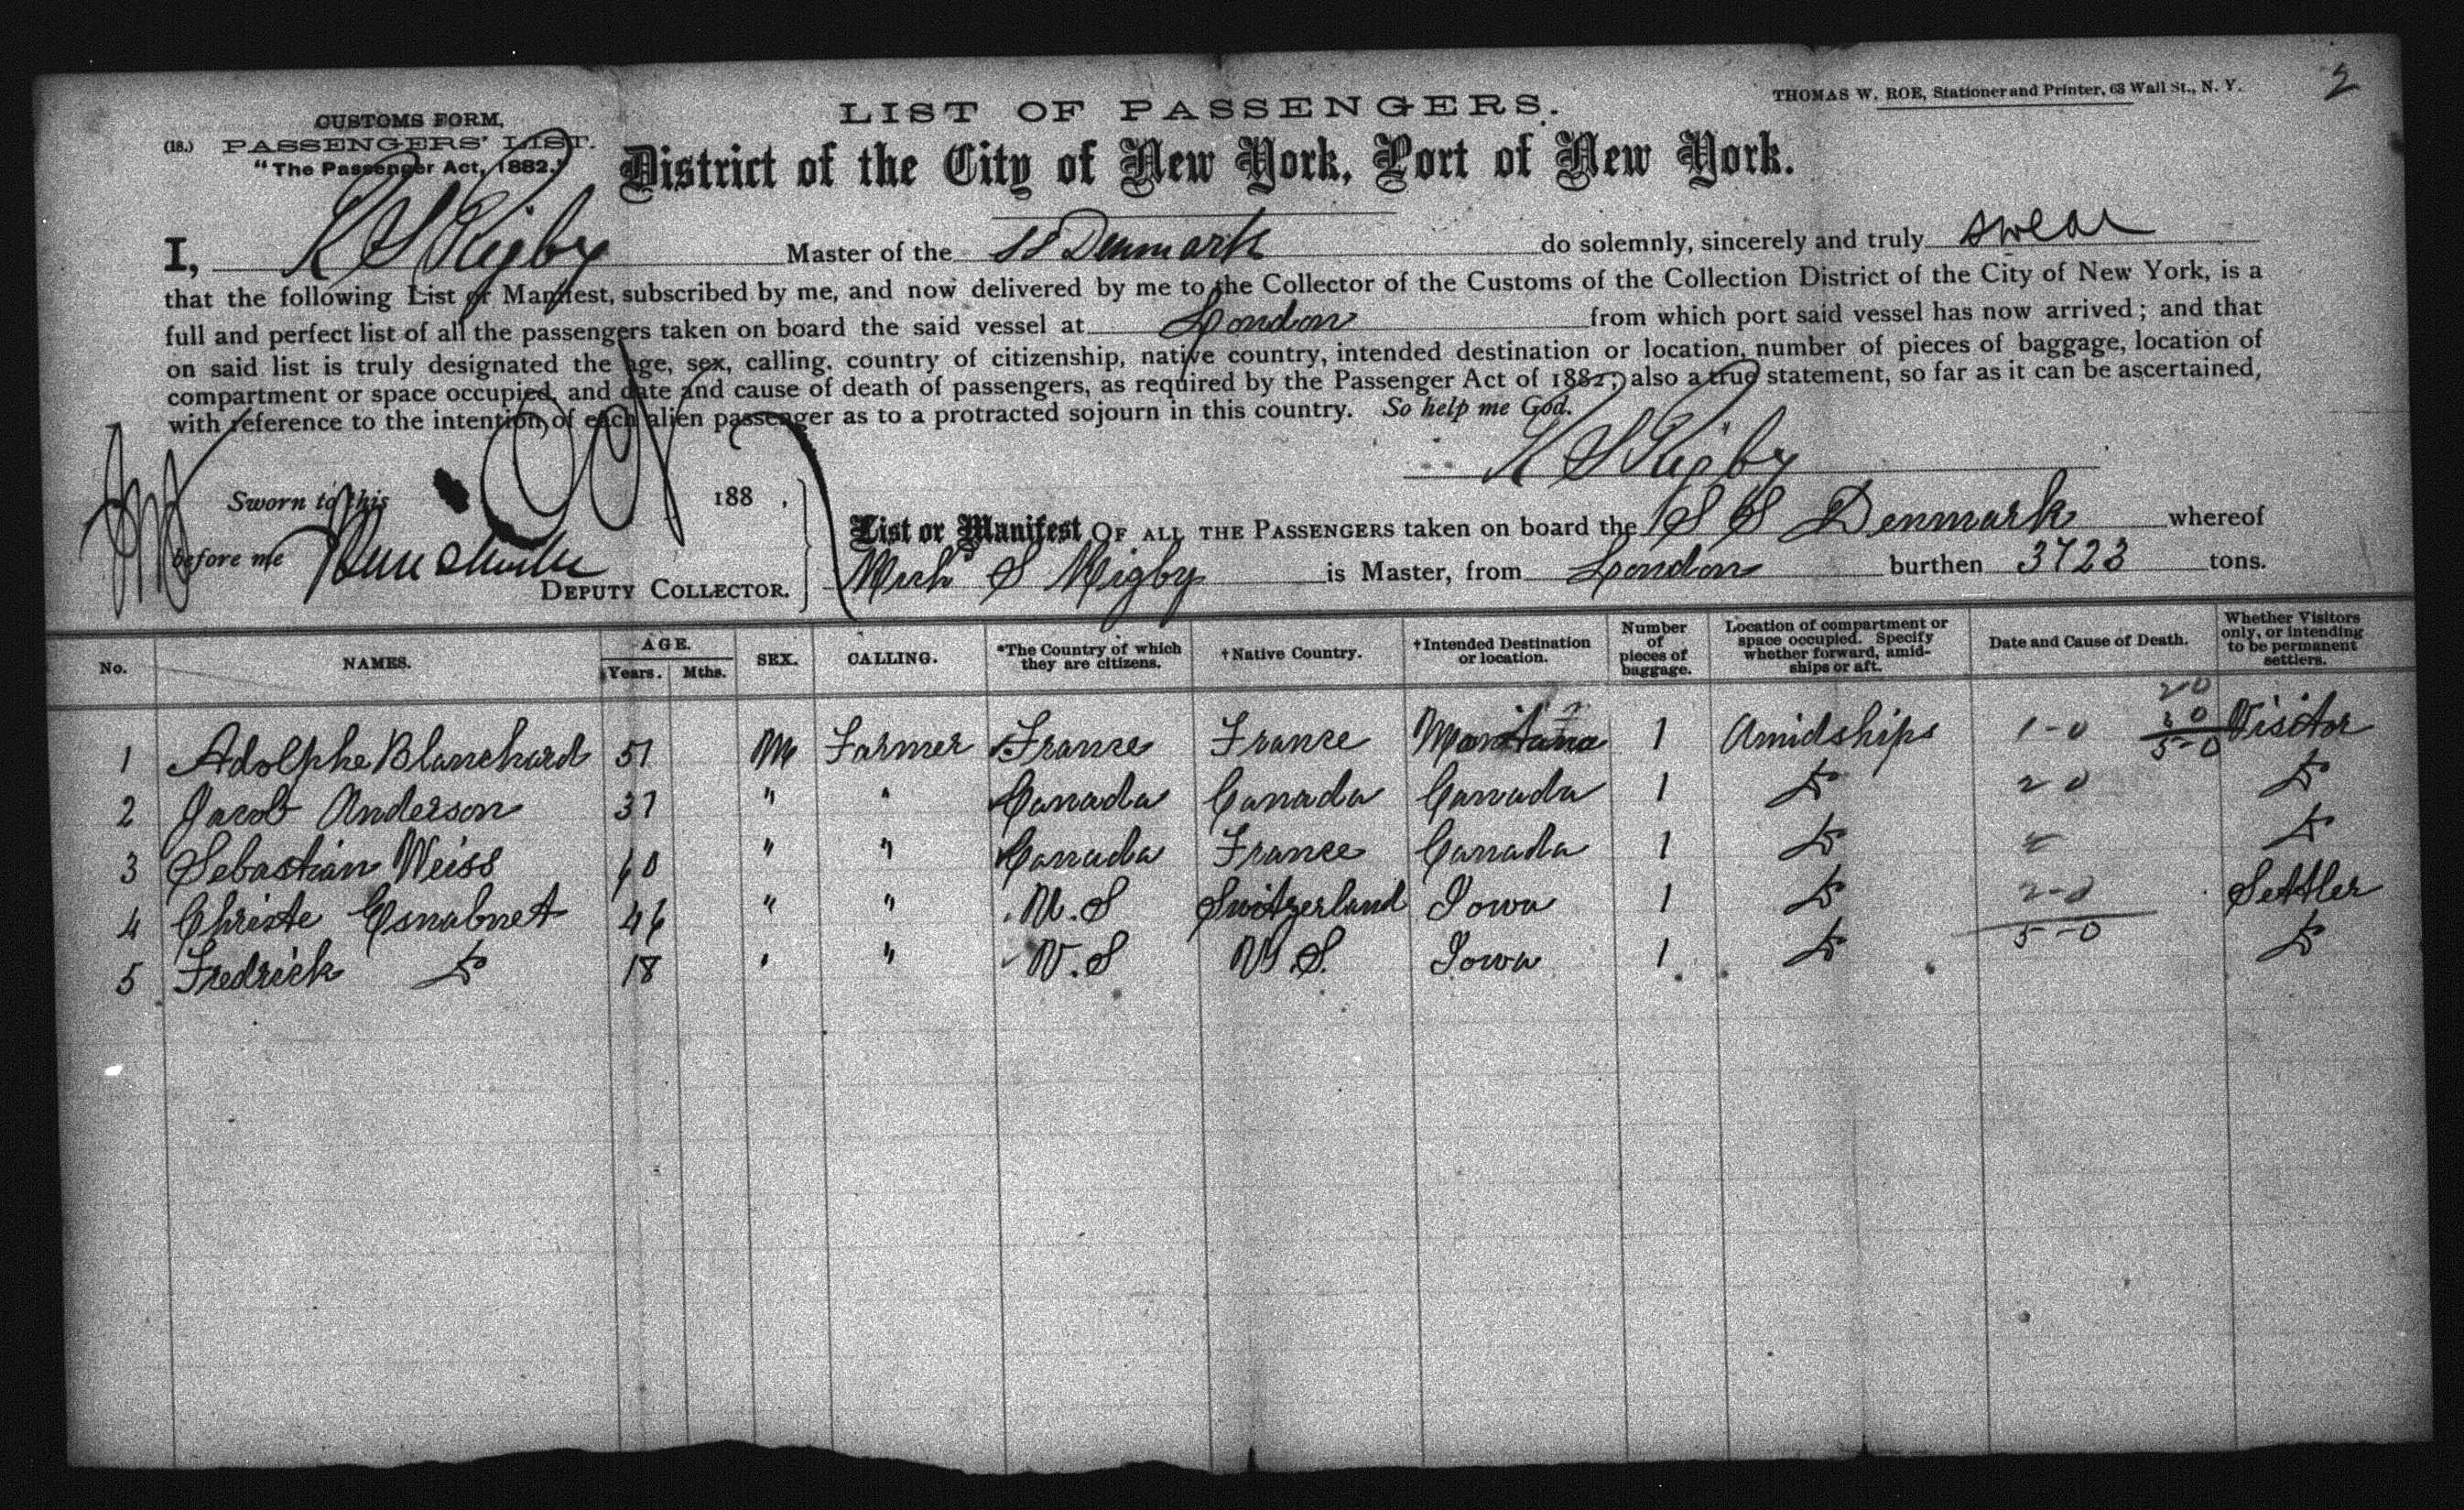 THOMAS W. ROE, Stationer and Printer, 63 Wall St., N. Y.
2
CUSTOMS FORM,
(18.) PASSENGERS' LIST.
"The Passenger Act, 1882."
LIST OF PASSENGERS.
District of the City of New York, Port of New York.
I, Rigby Master of the SS Denmark do solemnly, sincerely and truly swear
that the following List or Manifest, subscribed by me, and now delivered by me to the Collector of the Customs of the Collection District of the City of New York, is a
full and perfect list of all the passengers taken on board the said vessel at London from which port said vessel has now arrived; and that
on said list is truly designated the age, sex, calling, country of citizenship, native country, intended destination or location, number of pieces of baggage, location of
compartment or space occupied, and date and cause of death of passengers, as required by the Passenger Act of 1882; also a true statement, so far as it can be ascertained,
with reference to the intention of each alien passenger as to a protracted sojourn in this country. So help me God.
Rigby
Sworn to this 188 ,
before me
DEPUTY COLLECTOR.
List or Manifest OF ALL THE PASSENGERS taken on board the SS Denmark whereof
S Rigby is Master, from London burthen 3723 tons.
No. NAMES. AGE. Years. Mths. SEX. CALLING. *The Country of which they are citizens. †Native Country. †Intended Destination or location. Number of pieces of baggage. Location of compartment or space occupied. Specify whether forward, amidships or aft. Date and Cause of Death. Whether Visitors only, or intending to be permanent settlers.
20
30
50
1 Adolphe Blanchard 51 M Farmer France France Montana 1 Amidships 1-0 Visitor
2 Jacob Anderson 37 " " Canada Canada Canada 1 Do 20 Do
3 Sebastian Weiss 60 " " Canada France Canada 1 Do Do
4 Christe 46 " " U.S Switzerland Iowa 1 Do 2-0 Settler
5 Fredrick Do 18 " " U.S U.S. Iowa 1 Do 5-0 Do